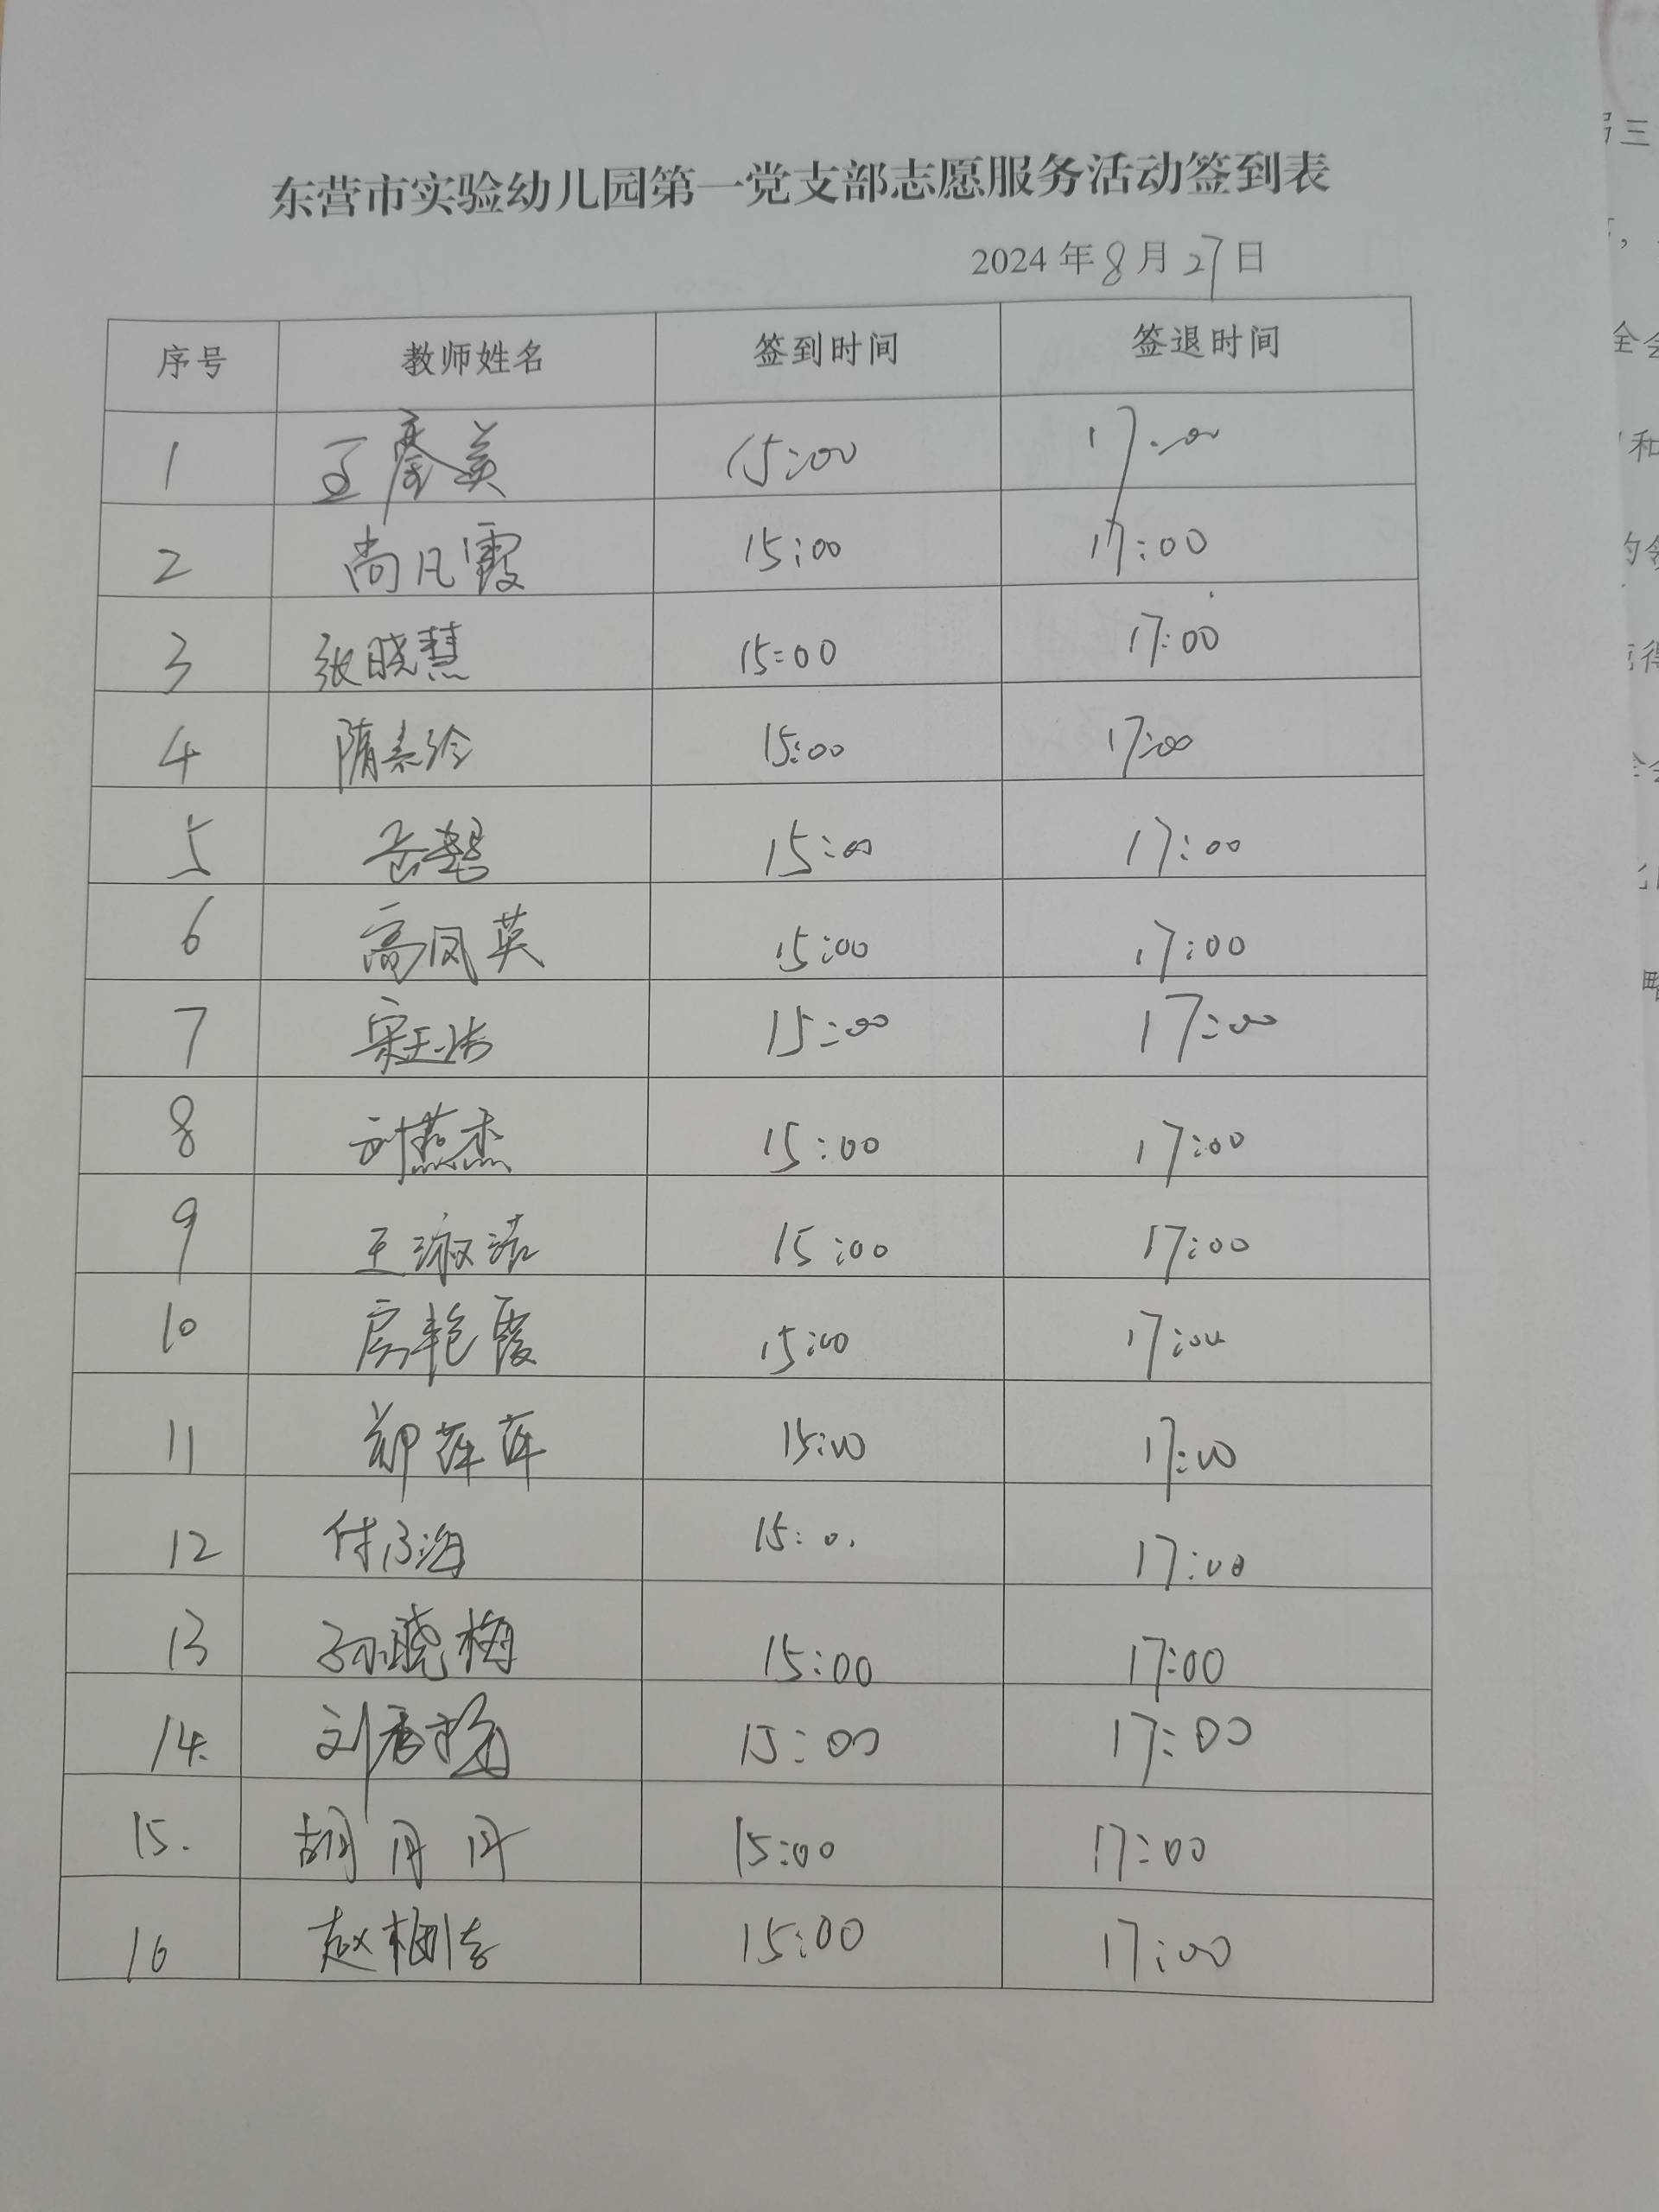 东营市实验幼儿园第一党支部志愿服务活动签到表
2024年8月27日
序号 教师姓名 签到时间 签退时间
1 王 英 15:00 17:00
2 尚凡霞 15:00 17:00
3 张晓慧 15:00 17:00
4 隋素玲 15:00 17:00
5 岳慧 15:00 17:00
6 高凤英 15:00 17:00
7 宋玉洁 15:00 17:00
8 刘燕杰 15:00 17:00
9 王淑洁 15:00 17:00
10 房艳霞 15:00 17:00
11 郑萍萍 15:00 17:00
12 付 海 15:0. 17:00
13 孙晓梅 15:00 17:00
14. 刘香梅 15:00 17:00
15. 胡丹丹 15:00 17:00
16 赵 15:00 17:00
三
，
全会
和
的领
得
全会
略